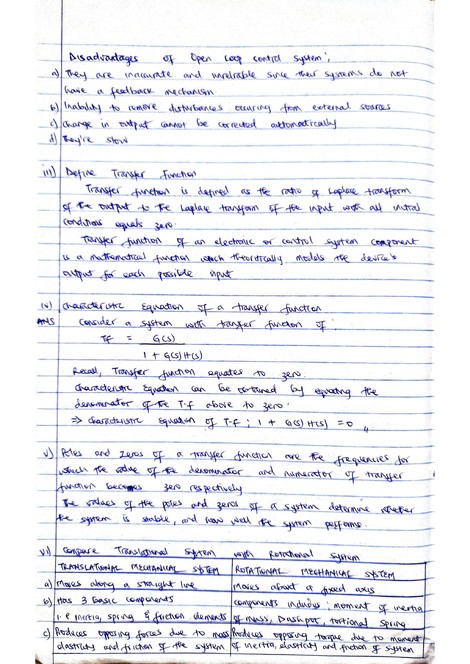 Disadvantages of Open Loop control system;
a) They are inaccurate and unreliable since their systems do not
have a feedback mechanism
b) Inability to remove disturbances occuring from external sources
c) Change in output cannot be corrected automatically
d) They're slow
iii) Define Transfer function
Transfer function is defined as the ratio of Laplace transform
of the output to the Laplace transform of the input with all initial
conditions equals zero.
Transfer function of an electronic or control system component
is a mathematical function which theoritically models the device's
output for each possible input
iv) Characteristic Equation of a transfer function
ANS Consider a system with tranfer function of:
TF = G(s)
1 + G(s)H(s)
Recall, Transfer function equates to zero.
Characteristic Equation can be obtained by equating the
denominator of the T.f above to zero.
⇒ Characteristic Equation of T.f ; 1 + G(s) H(s) = 0 //
v) Poles and Zeros of a transfer function are the frequencies for
which the value of the denominator and numerator of transfer
function becomes zero respectively
The values of the poles and zeros of a system determine whether
the system is stable, and how well the system performs.
vi) Compare Translational System with Rotational System
TRANSLATIONAL MECHANICAL SYSTEM ROTATIONAL MECHANICAL SYSTEM
a) Moves along a straight line Moves about a fixed axis
b) Has 3 basic components components includes: moment of inertia
i.e inertia, spring & friction elements of mass, Dashpot, tortional spring
c) Produces opposing forces due to mass Produces opposing torque due to moment
elasticity and friction of the system of inertia, elasticity and friction of system